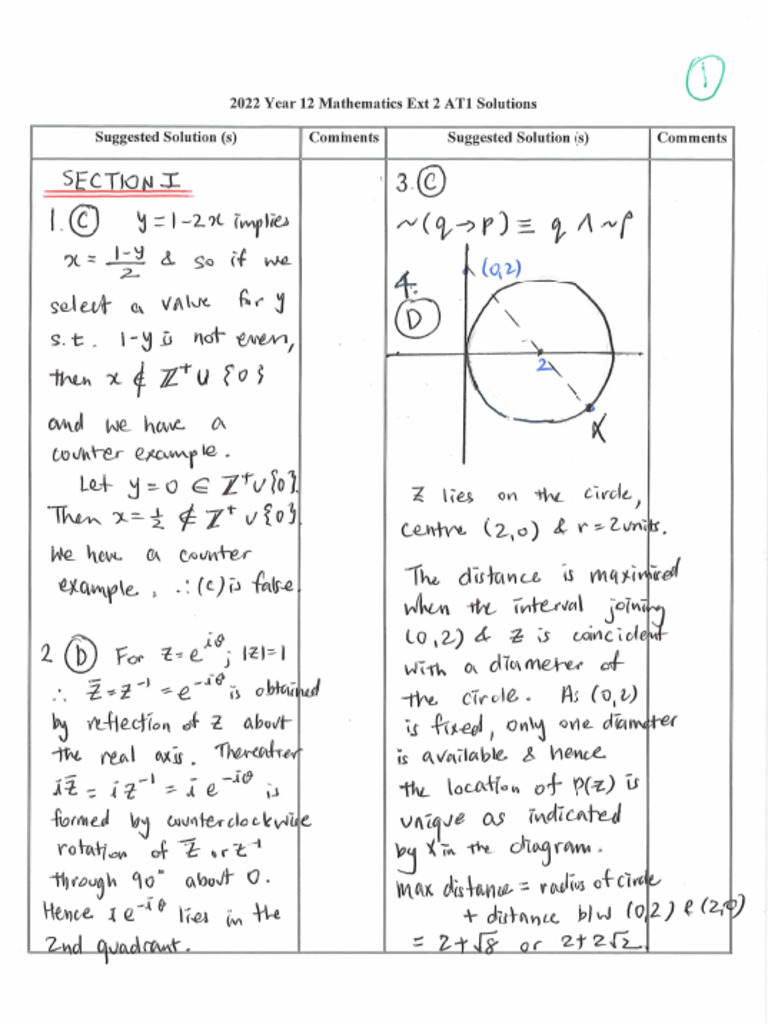 1
2022 Year 12 Mathematics Ext 2 AT1 Solutions
Suggested Solution (s)
Comments
Suggested Solution (s)
Comments
SECTION I
1. (C) y = 1 - 2x implies
x = (1-y)/2 & so if we
select a value for y
s.t. 1-y is not even,
then x ∉ ℤ⁺ ∪ {0}
and we have a
counter example.
Let y = 0 ∈ ℤ⁺ ∪ {0}.
Then x = ½ ∉ ℤ⁺ ∪ {0}.
We have a counter
example, ∴ (C) is false.
2 (D) For z = e^{iθ}; |z| = 1
∴ z̄ = z⁻¹ = e^{-iθ} is obtained
by reflection of z about
the real axis. Thereafter
iz̄ = iz⁻¹ = i e^{-iθ} is
formed by counterclockwise
rotation of z̄ or z⁻¹
through 90° about O.
Hence i e^{-iθ} lies in the
2nd quadrant.
3. (C)
~(q → p) ≡ q ∧ ~p
4.
(D)
(0,2)
2
X
Z lies on the circle,
centre (2,0) & r = 2 units.
The distance is maximised
when the interval joining
(0,2) & Z is coincident
with a diameter of
the circle. As (0,2)
is fixed, only one diameter
is available & hence
the location of P(z) is
unique as indicated
by X in the diagram.
max distance = radius of circle
+ distance b/w (0,2) & (2,0)
= 2+√8 or 2+2√2.